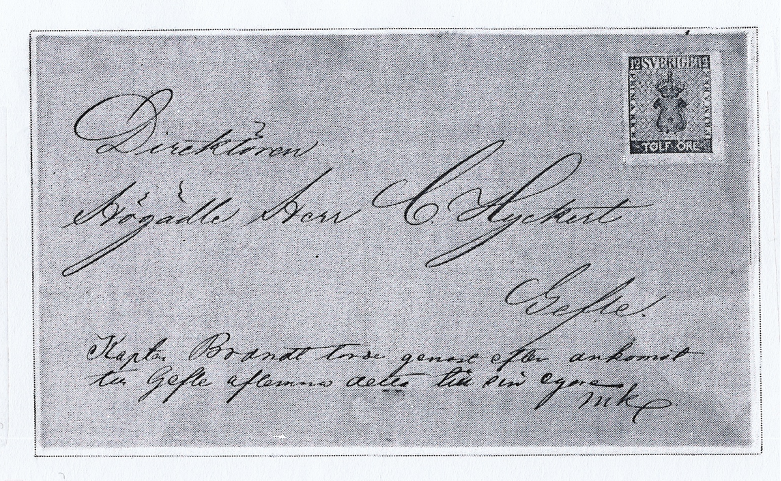 12 SVERIGE 12
FRIMÄRKE FRIMÄRKE
TOLF ÖRE
Direktören
Högädle Herr C Hyckert
Gefle.
Kapten Brandt torde genast efter ankomst
till Gefle aflemna detta till sin egare